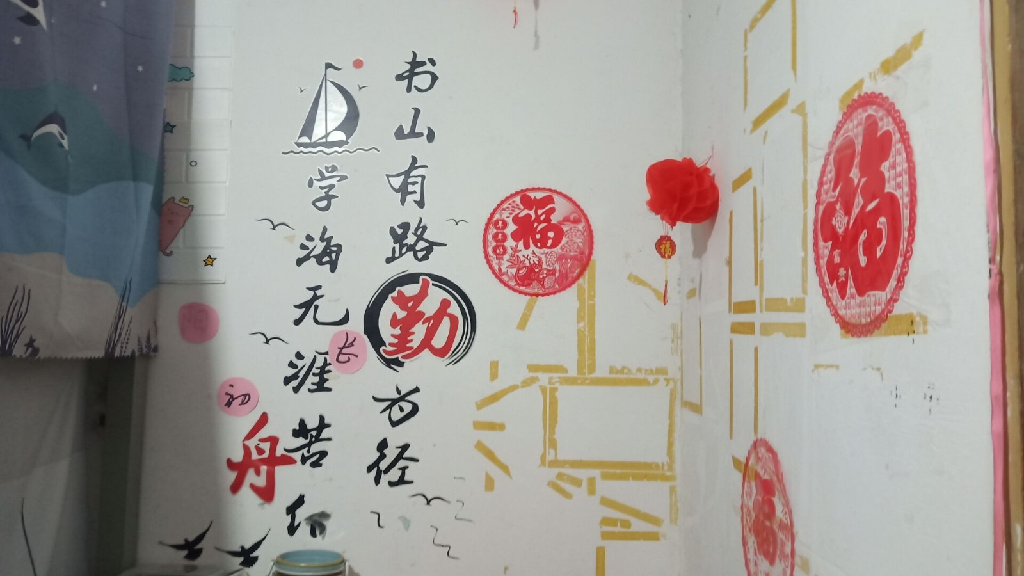 书山有路勤为径
学海无涯苦作
舟
长
初
福
福
福